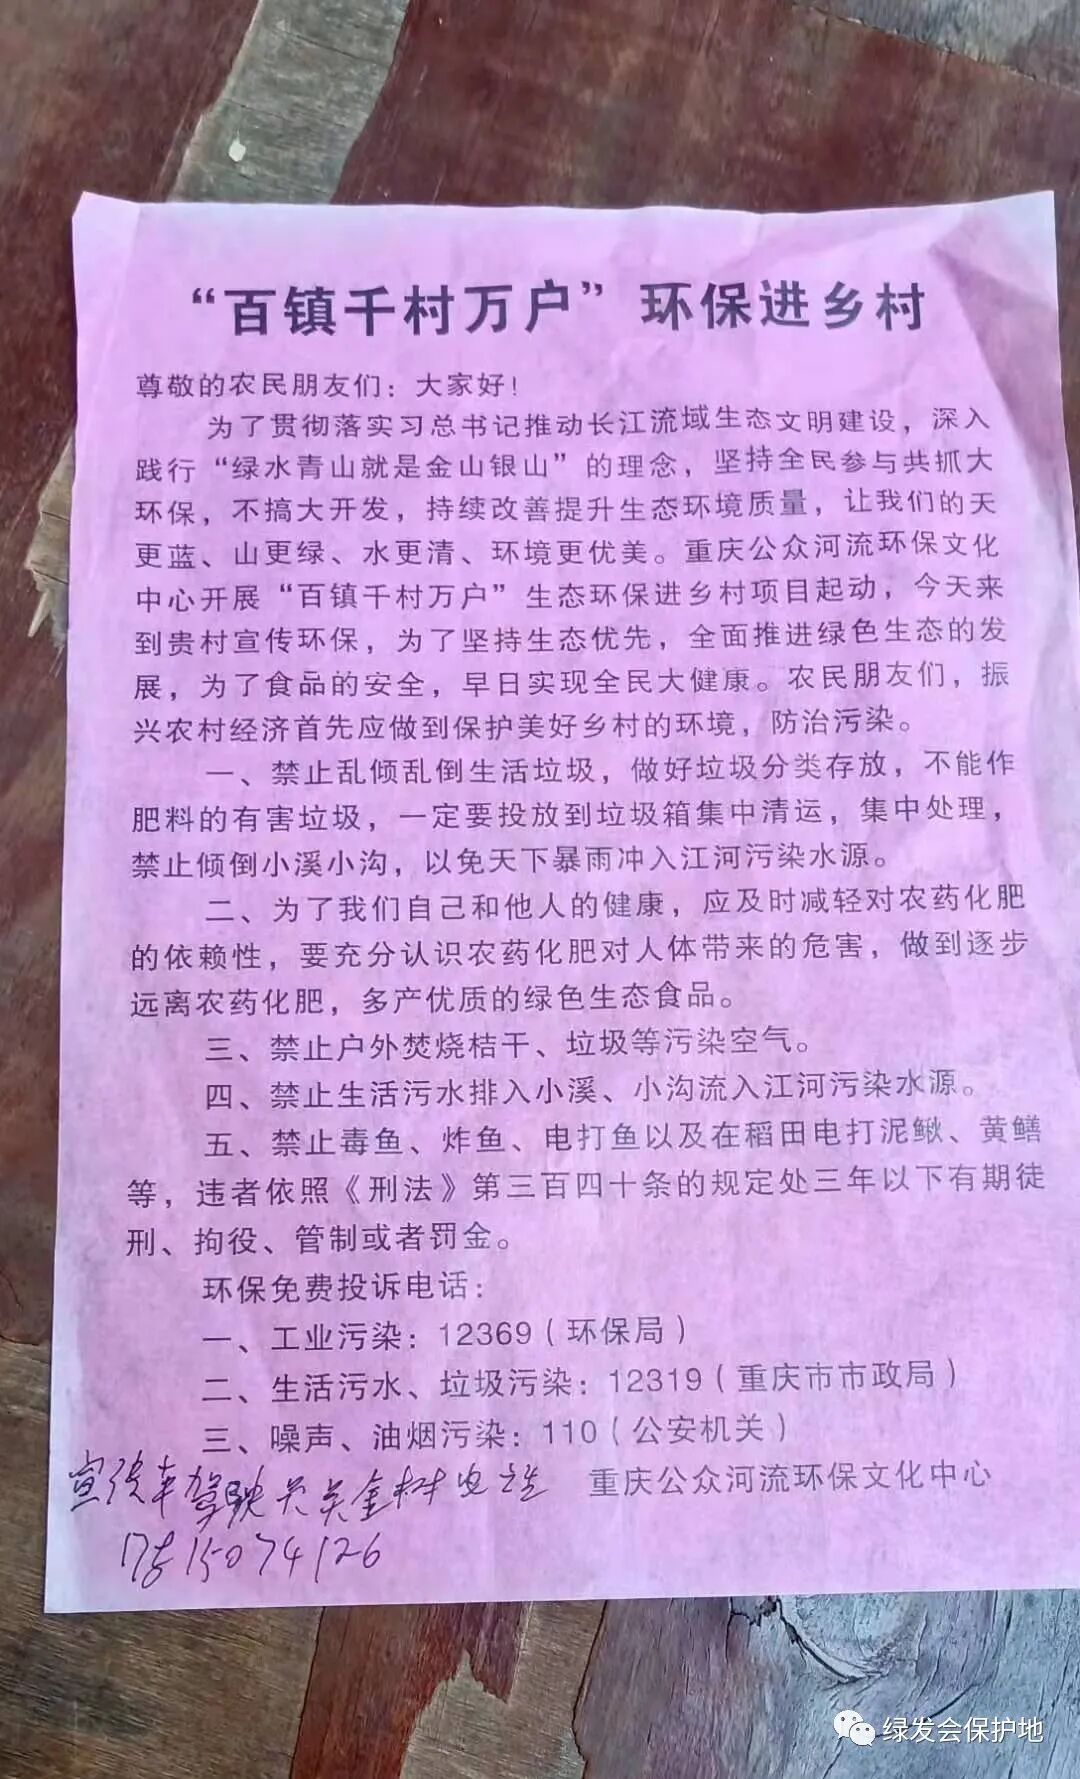 “百镇千村万户”环保进乡村
尊敬的农民朋友们：大家好！
为了贯彻落实习总书记推动长江流域生态文明建设，深入
践行“绿水青山就是金山银山”的理念，坚持全民参与共抓大
环保，不搞大开发，持续改善提升生态环境质量，让我们的天
更蓝、山更绿、水更清、环境更优美。重庆公众河流环保文化
中心开展“百镇千村万户”生态环保进乡村项目起动，今天来
到贵村宣传环保，为了坚持生态优先，全面推进绿色生态的发
展，为了食品的安全，早日实现全民大健康。农民朋友们，振
兴农村经济首先应做到保护美好乡村的环境，防治污染。
一、禁止乱倾乱倒生活垃圾，做好垃圾分类存放，不能作
肥料的有害垃圾，一定要投放到垃圾箱集中清运，集中处理，
禁止倾倒小溪小沟，以免天下暴雨冲入江河污染水源。
二、为了我们自己和他人的健康，应及时减轻对农药化肥
的依赖性，要充分认识农药化肥对人体带来的危害，做到逐步
远离农药化肥，多产优质的绿色生态食品。
三、禁止户外焚烧桔干、垃圾等污染空气。
四、禁止生活污水排入小溪、小沟流入江河污染水源。
五、禁止毒鱼、炸鱼、电打鱼以及在稻田电打泥鳅、黄鳝
等，违者依照《刑法》第三百四十条的规定处三年以下有期徒
刑、拘役、管制或者罚金。
环保免费投诉电话：
一、工业污染：12369（环保局）
二、生活污水、垃圾污染：12319（重庆市市政局）
三、噪声、油烟污染：110（公安机关）
重庆公众河流环保文化中心
宣传车驾驶
绿发会保护地